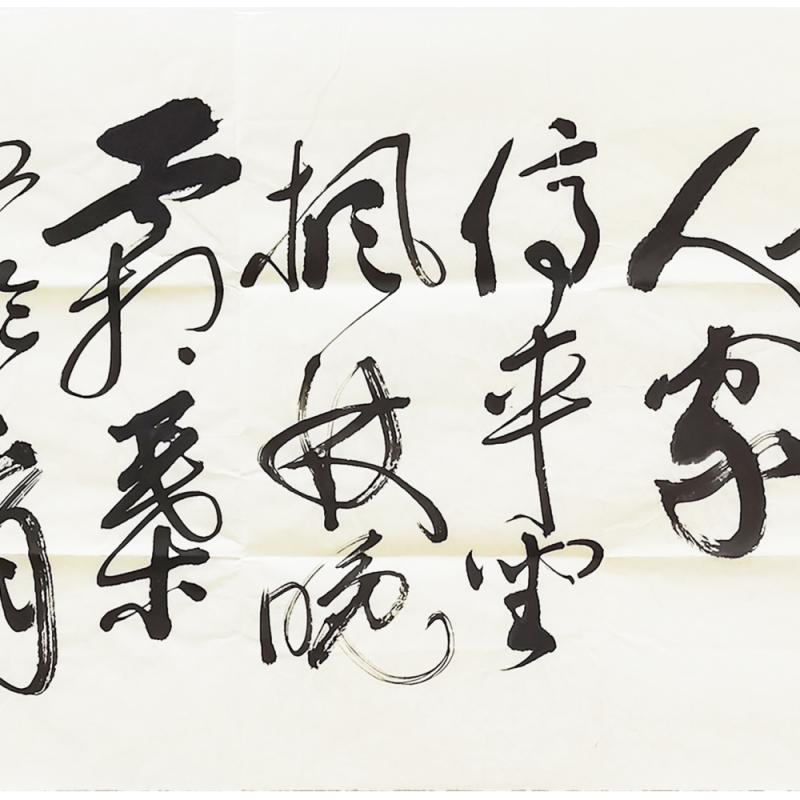 人家
停车坐
枫林晚
霜葉